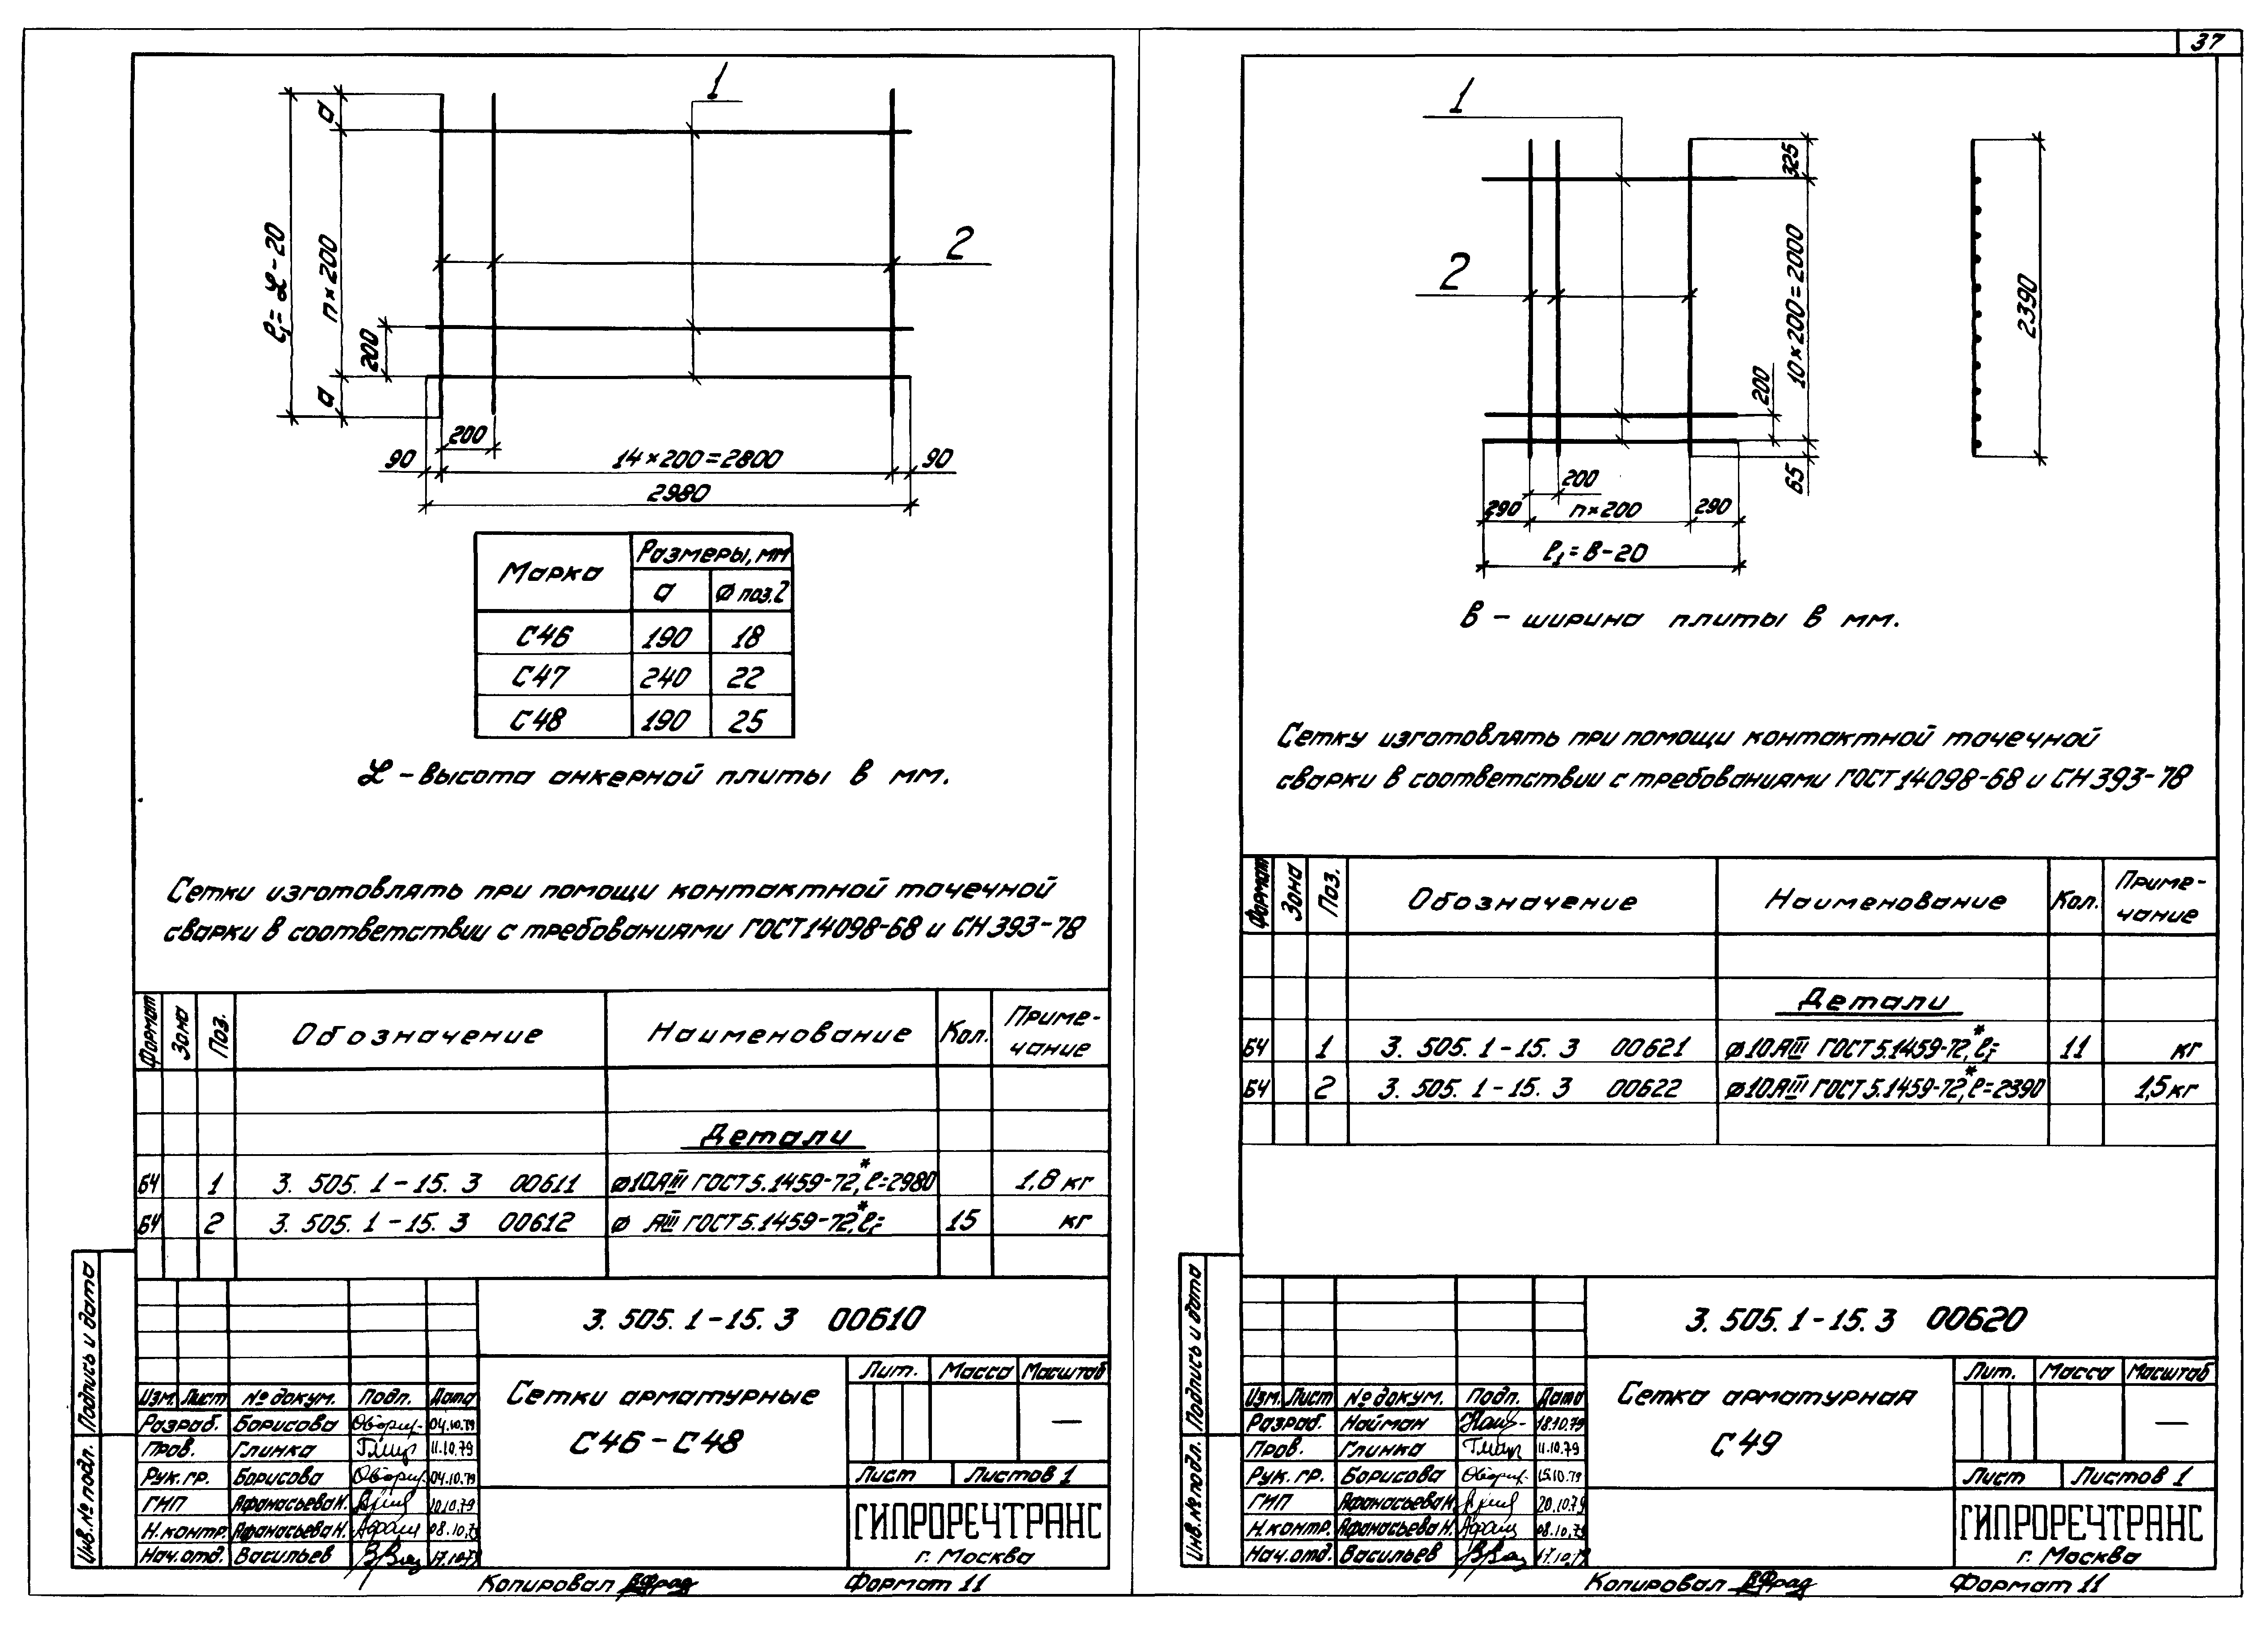 37
1
2
а
n×200
а
ℓ₁=ℒ-20
200
200
90
14×200=2800
90
2980
Марка
Размеры, мм
а
ø поз.2
С46 190 18
С47 240 22
С48 190 25
ℒ - высота анкерной плиты в мм.
Сетки изготовлять при помощи контактной точечной
сварки в соответствии с требованиями ГОСТ 14098-68 и СН 393-78
Формат Зона Поз. Обозначение Наименование Кол. Приме-
чание
Детали
БЧ 1 3. 505. 1-15. 3 00611 ø10АIII ГОСТ 5.1459-72*, ℓ=2980 1,8 кг
БЧ 2 3. 505. 1-15. 3 00612 ø АIII ГОСТ 5.1459-72*, ℓ₁= 15 кг
3. 505. 1-15. 3 00610
Сетки арматурные
С46-С48
Лит. Масса Масштаб
—
Лист Листов 1
ГИПРОРЕЧТРАНС
г. Москва
Изм. Лист № докум. Подп. Дата
Разраб. Борисова 04.10.79
Пров. Глинка 11.10.79
Рук. гр. Борисова 04.10.79
ГИП Афанасьева Н. 20.10.79
Н. контр. Афанасьева Н. 08.10.79
Нач. отд. Васильев 17.10.79
Подпись и дата
Инв. № подл.
Копировал
Формат 11
1
2
325
10×200=2000
200
65
2390
200
290
n×200
290
ℓ₁=В-20
В - ширина плиты в мм.
Сетку изготовлять при помощи контактной точечной
сварки в соответствии с требованиями ГОСТ 14098-68 и СН 393-78
Формат Зона Поз. Обозначение Наименование Кол. Приме-
чание
Детали
БЧ 1 3. 505. 1-15. 3 00621 ø10АIII ГОСТ 5.1459-72*, ℓ₁= 11 кг
БЧ 2 3. 505. 1-15. 3 00622 ø10АIII ГОСТ 5.1459-72*, ℓ=2390 1,5 кг
3. 505. 1-15. 3 00620
Сетка арматурная
С49
Лит. Масса Масштаб
—
Лист Листов 1
ГИПРОРЕЧТРАНС
г. Москва
Изм. Лист № докум. Подп. Дата
Разраб. Найман 18.10.79
Пров. Глинка 11.10.79
Рук. гр. Борисова 15.10.79
ГИП Афанасьева Н. 20.10.79
Н. контр. Афанасьева Н. 08.10.79
Нач. отд. Васильев 17.10.79
Подпись и дата
Инв. № подл.
Копировал
Формат 11